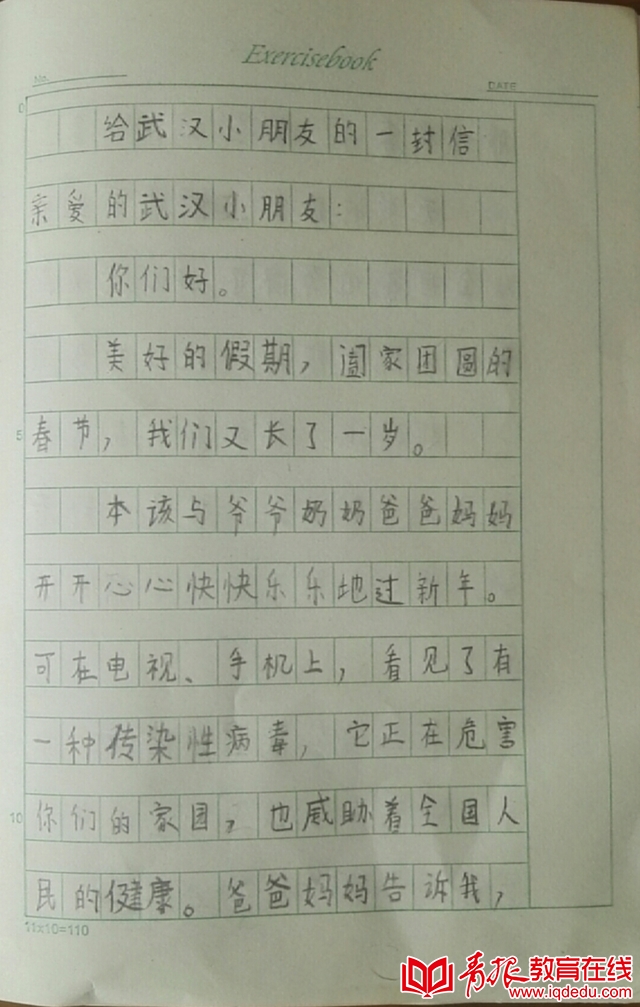 Exercisebook
No.
DATE
0
给武汉小朋友的一封信
亲爱的武汉小朋友：
你们好。
美好的假期，阖家团圆的
5
春节，我们又长了一岁。
本该与爷爷奶奶爸爸妈妈
开开心心快快乐乐地过新年。
可在电视、手机上，看见了有
一种传染性病毒，它正在危害
10
你们的家园，也威助着全国人
民的健康。爸爸妈妈告诉我，
11×10=110
青报教育在线
www.iqdedu.com